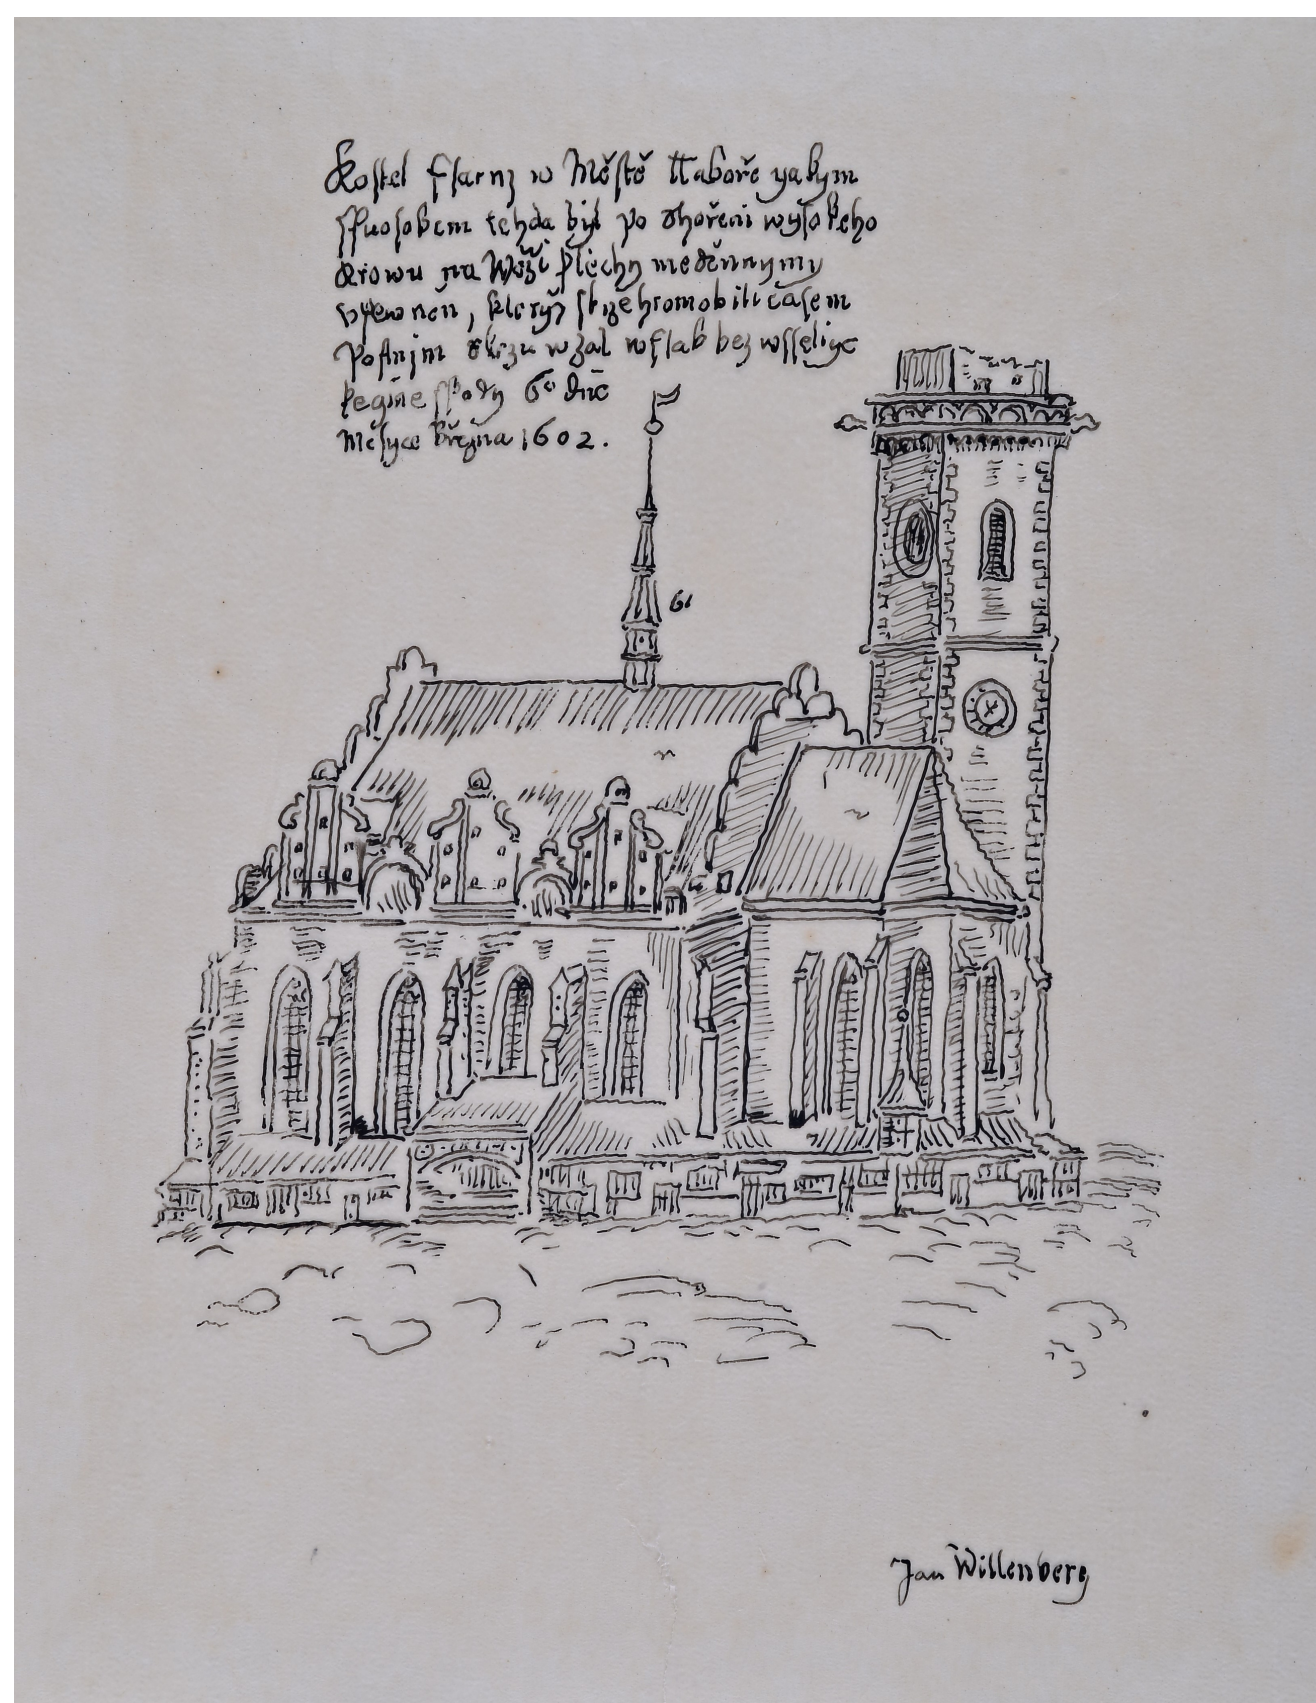 Kostel ffarnj w Městě Ttaboře yakym
spuosobem tehda byl po shořeni wysokeho
krowu na Wěži plechy měděnnymy
vpewnen, kteryž skrze hromobiti časem
wzal wsak bez wsseliye
6º dne
Měsyce Března 1602.
61
Jan Willenberg